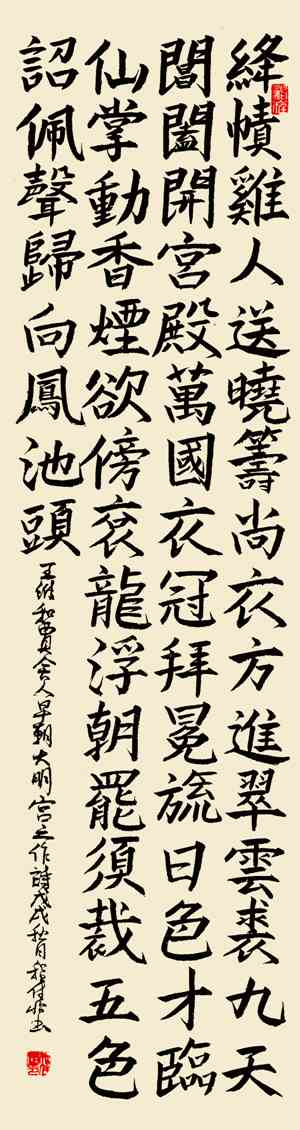 絳幘雞人送曉籌尚衣方進翠雲裘九天
閶闔開宮殿萬國衣冠拜冕旒日色才臨
仙掌動香煙欲傍袞龍浮朝罷須裁五色
詔佩聲歸向鳳池頭
王維和賈舍人早朝大明宮之作詩戊戌秋月